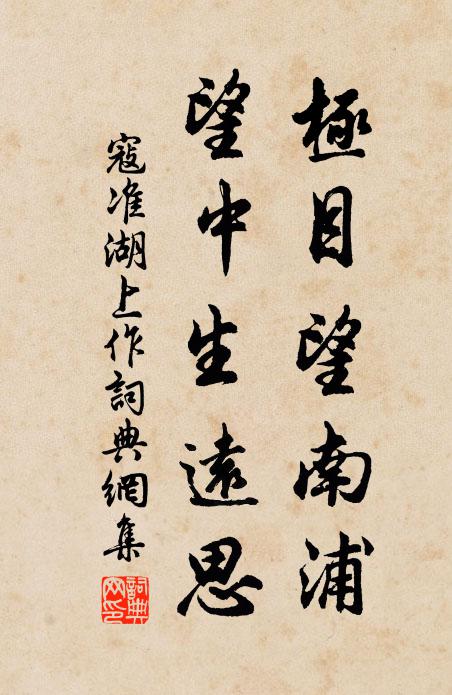 極目望南浦
望中生遠思
寇准湖上作詞典網集
詞典
網印